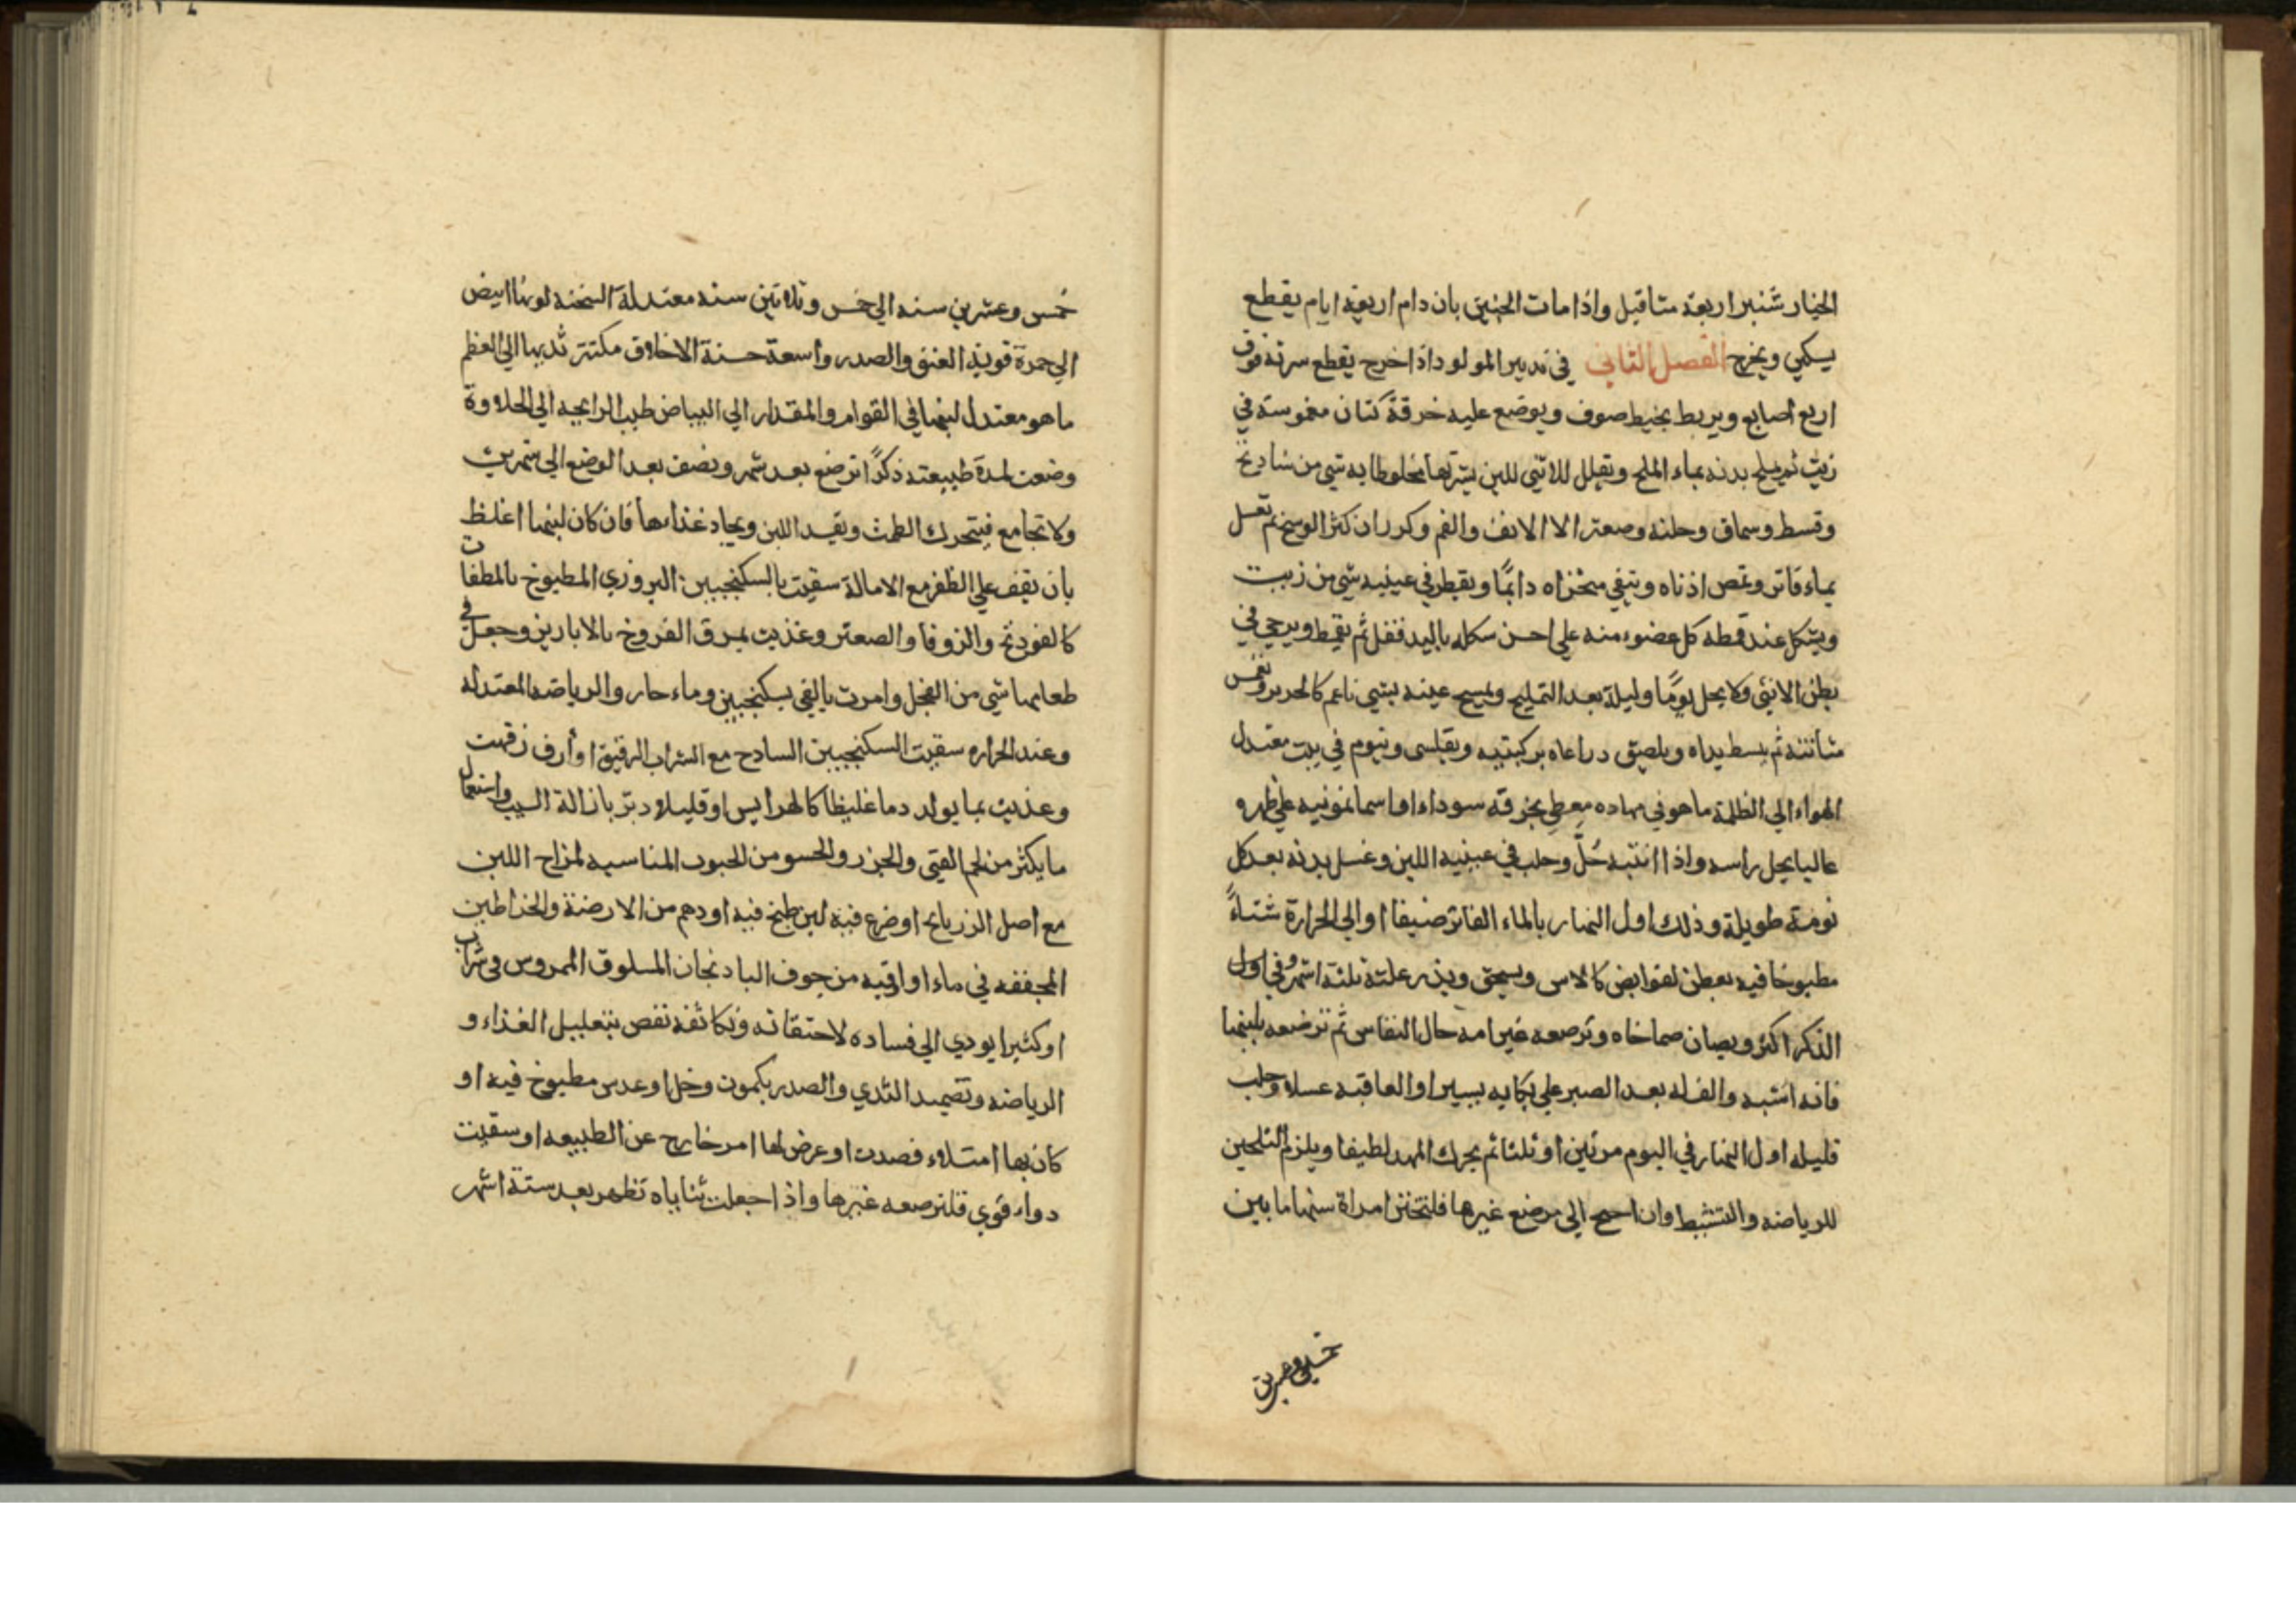 الخيار شنبر اربعة مثاقيل واذا مات الجنين بان دام اربعة ايام يقطع
يسكي ويخرج الفصل الثاني في تدبير المولود اذا خرج يقطع سرته فوق
اربع اصابع ويربط بخيط صوف ويوضع عليه خرقة كتان مغموسة في
زيت ثم يملح بدنه بماء الملح وتقلل للانثي للين بشرتها مخلوطا به شي من شادنج
وقسط وسماق وحلبه وصعتر الا الانف والفم وكرر ان كثر الوسخ ثم تغسل
بماء فاتر وتمص اذناه وتنقي منخراه دائما ويقطر في عينيه شي من زيت
ويشكل عند قمطه كل عضوء منه علي احسن شكله باليد فقل ثم يقمط ويرخي في
بطن الانثي ولا يحل يومًا وليلة بعد التمليح ويمسح عينه بشي ناعم كالحرير وتغمس
مثانته ثم يبسط يداه ويلصق دراعاه بركبتيه ويقلس وينوم في بيت معتدل
الهواء الي الظلمة ما هو في مهاده معطي بخرقة سوداء او اسمانجونيه علي ظهره
عاليا بحل راسه واذا انتبه حُلَّ وحلب في عينيه اللبن وغسل بدنه بعد كل
نومة طويلة وذلك اول النهار بالماء الفاتر صيفا او الي الحرارة شتاءً
مطبوخا فيه بعض لقوابض كالاس ويسحق ويذر علته ثلثة اشهر وفي اول
الذكر اكثر ويصان صماخاه وترضعه غير امه حال النفاس ثم ترضعه بلبنها
فانه اشبه والف له بعد الصبر علي بكايه يسيرا والعاقبه عسلا وحلب
قليله اول النهار في اليوم مرتين او ثلثا ثم يحرك المهد لطيفا ويلزم التلحين
للرياضه والتنشيط وان احتيج الي مرضع غيرها فلتختر امراة سنها ما بين
خمس وعشرين
خمس وعشرين سنه الي خمس وثلاثين سنه معتدلة السحنه لونها ابيض
الي حمرة قوية العنق والصدر واسعة حسنة الاخلاق مكتنز ثديها الي العظم
ما هو معتدل لبنها في القوام والمقدار الي البياض طيب الرايحه الي الحلاوة
وضعت لمدة طبيعته ذكرًا ترضع بعد شهر ونصف بعد الوضع الي شهرين
ولا تجامع فيتحرك الطمث ويفسد اللبن ويجاد غذاءها فان كان لبنها اغلظ
بان يقف علي الظفر مع الامالة سقيت بالسكنجبين البزوري المطبوخ بالملطفات
كالفودنج والزوفا والصعتر وغذيت بمرق الفروخ بالابازير وجعل في
طعامها شي من الفجل وامرت بالقي بسكنجبين وماء حار والرياضه المعتدله
وعند الحراره سقيت السكنجبين السادج مع الشراب الرقيق او ارق زقيت
وغذيت بما يولد دما غليظا كالهرايس او قليلا دبّر بازالة السبب واستعمال
ما يكثر من لحم الفتي والجزر والحسو من الحبوب المناسبه لمزاج اللبن
مع اصل الرزيانج او ضرع فيه لبن طبخ فيه او دهم من الارضة والخراطين
المجففه في ماء او اوقيه من جوف البادنجان المسلوق الممروس في شراب
او كثيرا يودي الي فساده لاحتقانه وتكاثفه نقص بتقليل الغذاء و
الرياضه وتضميد الثدي والصدر بكمون وخل او عدس مطبوخ فيه او
كان بها امتلاء فصدت او عرض لها امر خارج عن الطبيعه او سقيت
دواء قوي فلترضعه غيرها واذا جعلت ثناياه تظهر بعد ستة اشهر